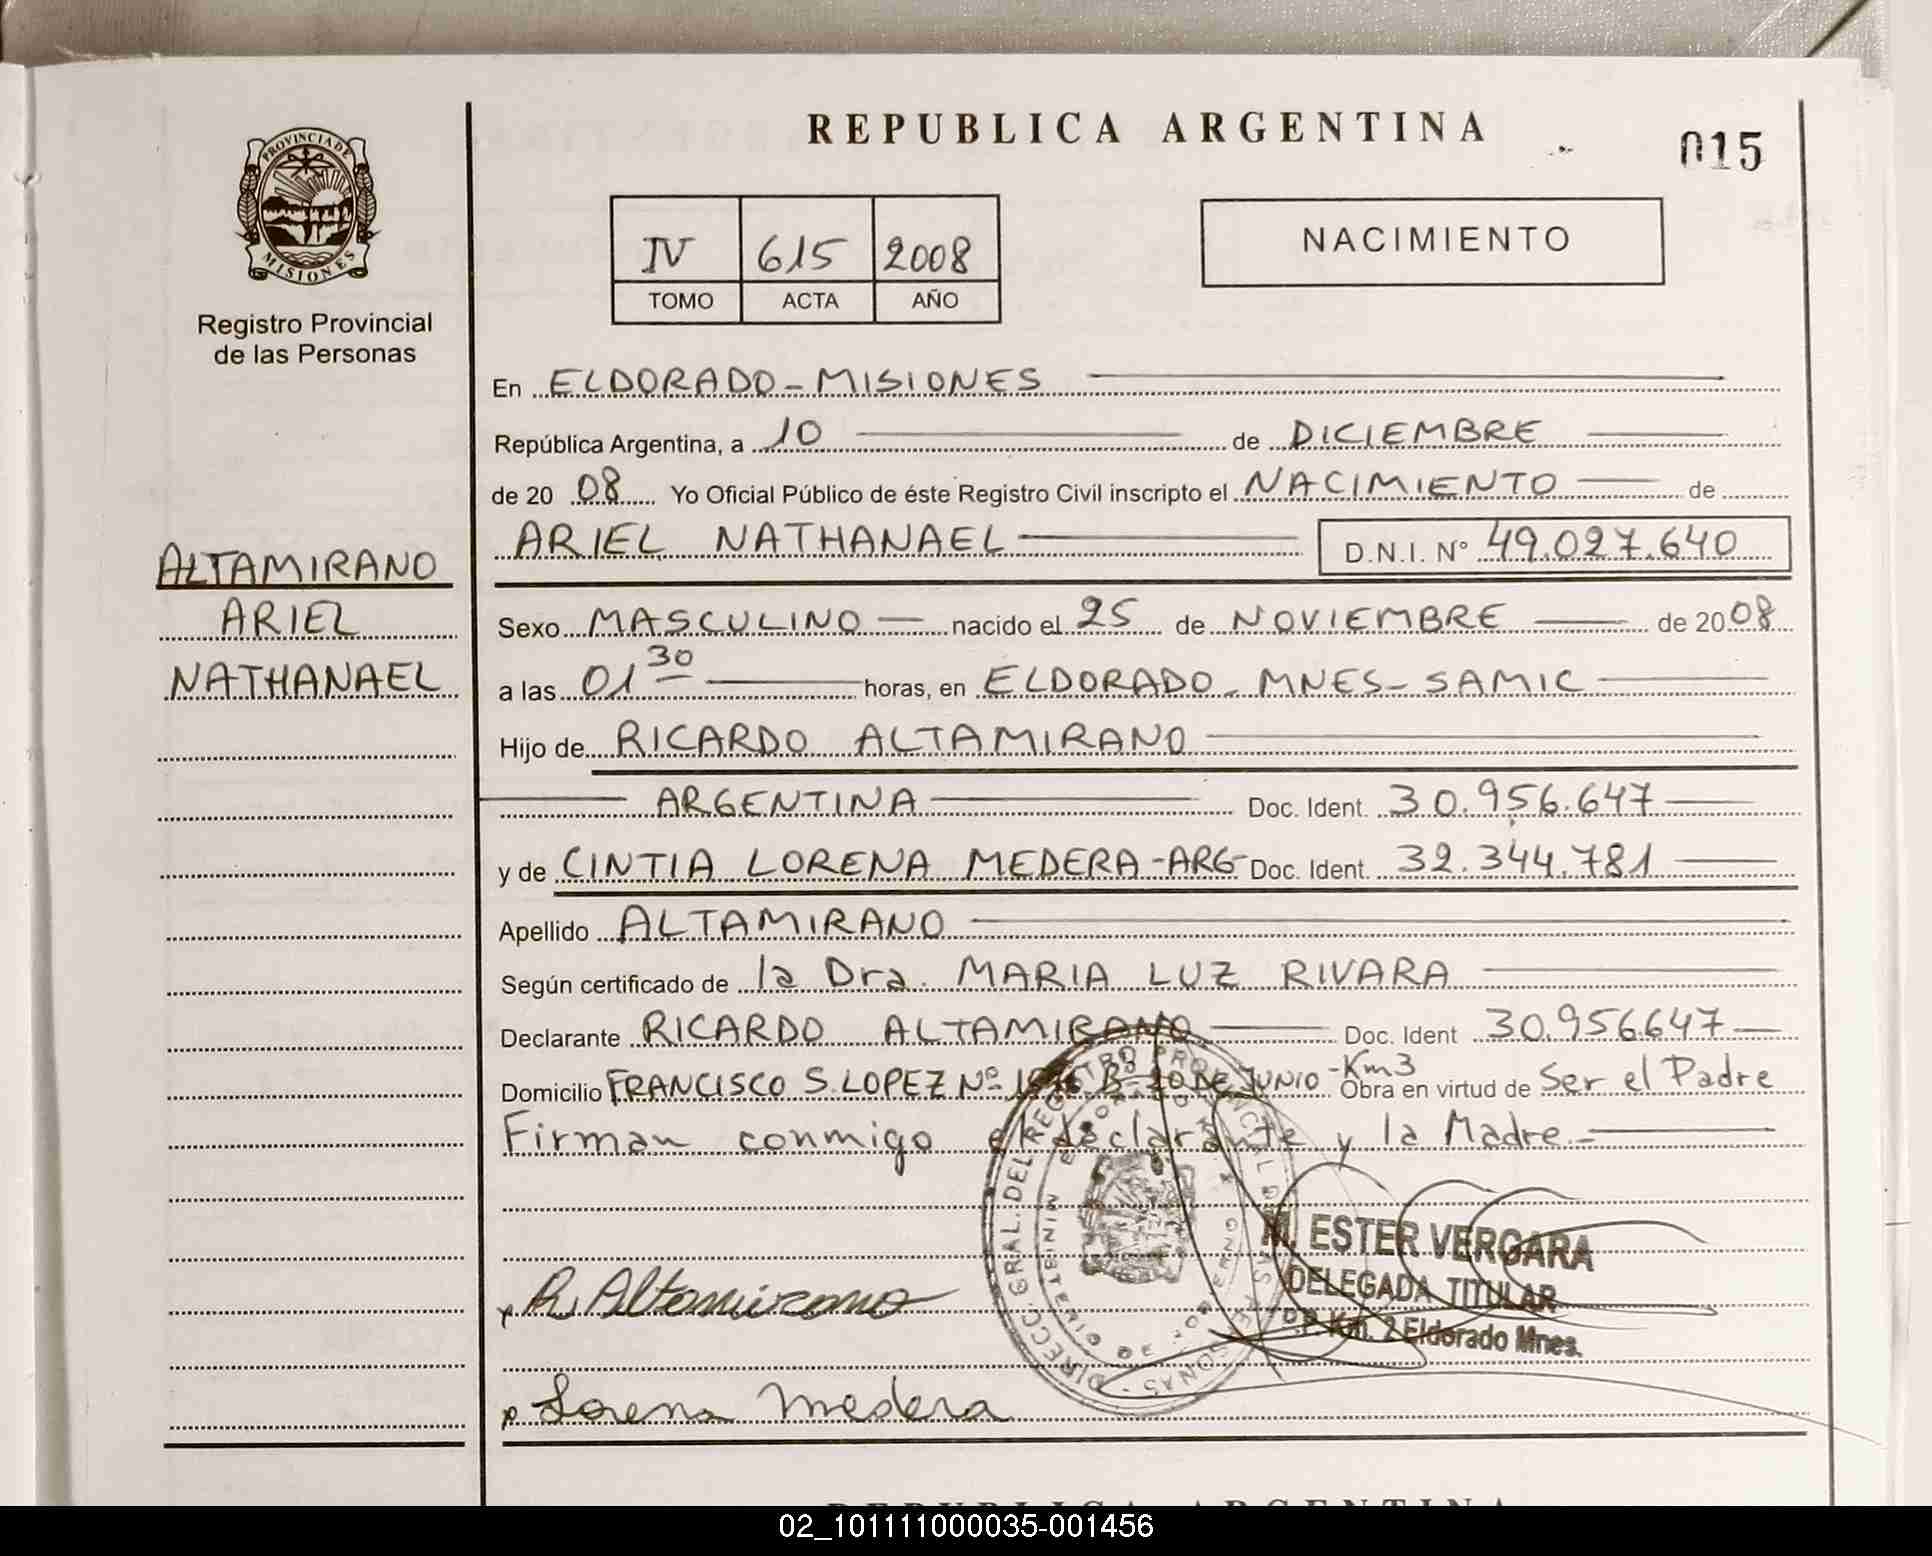 REPUBLICA ARGENTINA
015
PROVINCIA DE
MISIONES
Registro Provincial
de las Personas
IV 615 2008
TOMO ACTA AÑO
NACIMIENTO
En ELDORADO - MISIONES
República Argentina, a 10 de DICIEMBRE
de 20 08 Yo Oficial Público de éste Registro Civil inscripto el NACIMIENTO de
ARIEL NATHANAEL D.N.I. N° 49.027.640
ALTAMIRANO
ARIEL
NATHANAEL
Sexo MASCULINO nacido el 25 de NOVIEMBRE de 2008
a las 01 30 horas, en ELDORADO - MNES - SAMIC
Hijo de RICARDO ALTAMIRANO
ARGENTINA Doc. Ident. 30.956.647
y de CINTIA LORENA MEDERA - ARG - Doc. Ident. 32.344.781
Apellido ALTAMIRANO
Según certificado de la Dra. MARIA LUZ RIVARA
Declarante RICARDO ALTAMIRANO Doc. Ident 30.956.647
Domicilio FRANCISCO S. LOPEZ Nº B- 20 DE JUNIO - Km3 Obra en virtud de Ser el Padre
Firman conmigo el declarante y la Madre.-
DIRECC. GRAL. DEL REGISTRO PROVINCIAL DE LAS PERSONAS
MINISTERIO DE GOBIERNO
M. ESTER VERGARA
DELEGADA TITULAR
R.P. Km. 2 Eldorado Mnes.
x R. Altamirano
x Lorena Medera
REPUBLICA ARGENTINA
02_101111000035-001456